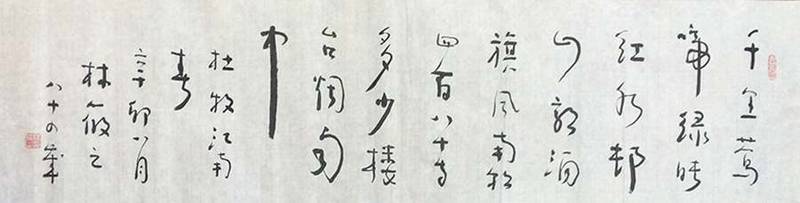 千里莺
啼绿映
红水邨
山郭酒
旗風南朝
四百八十寺
多少楼
台烟雨
中
杜牧江南
春
辛卯八月
林筱之
八十四歲